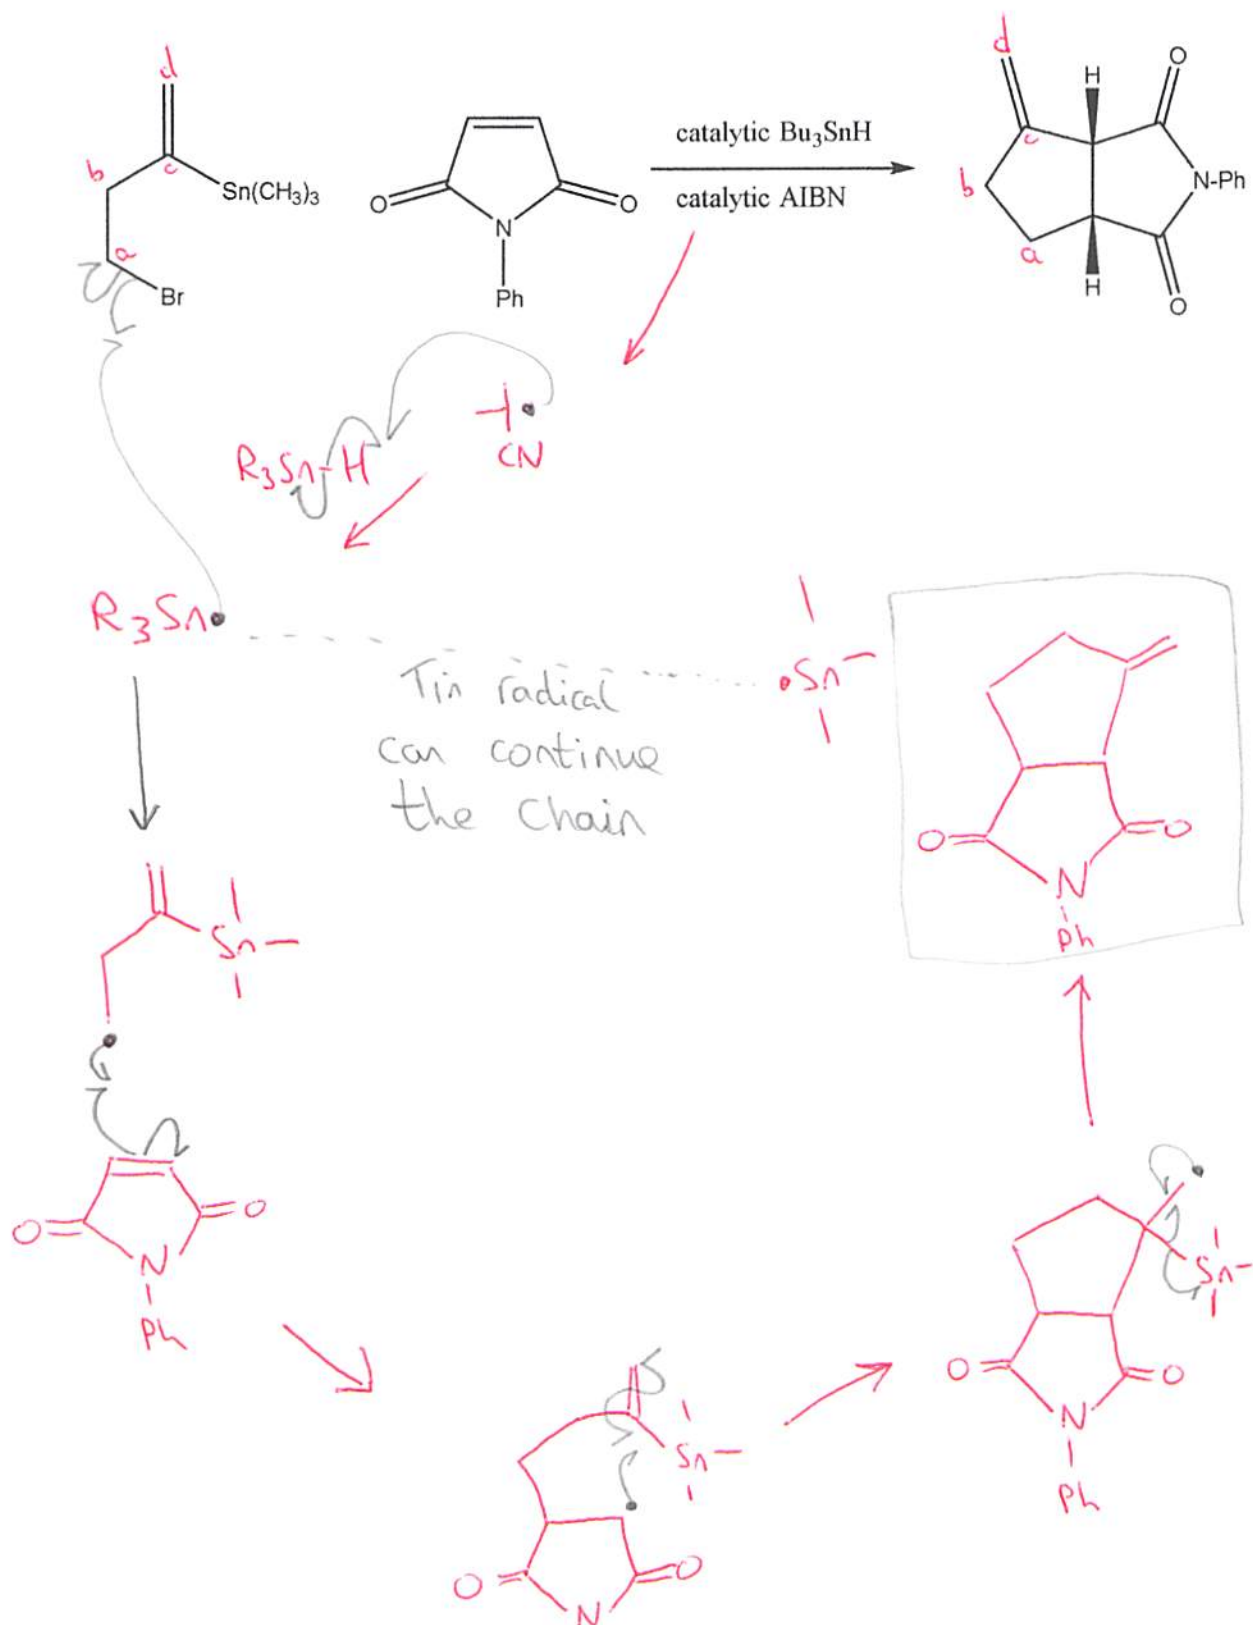 d
b
c
a
Sn(CH₃)₃
Br
O
O
N
Ph
catalytic Bu₃SnH
catalytic AIBN
d
H
O
c
b
N-Ph
a
H
O
CN
R₃Sn-H
R₃Sn•
Tin radical
can continue
the chain
•Sn
O
O
N
Ph
Sn
O
O
N
Ph
Sn
O
O
N
Ph
Sn
O
O
N